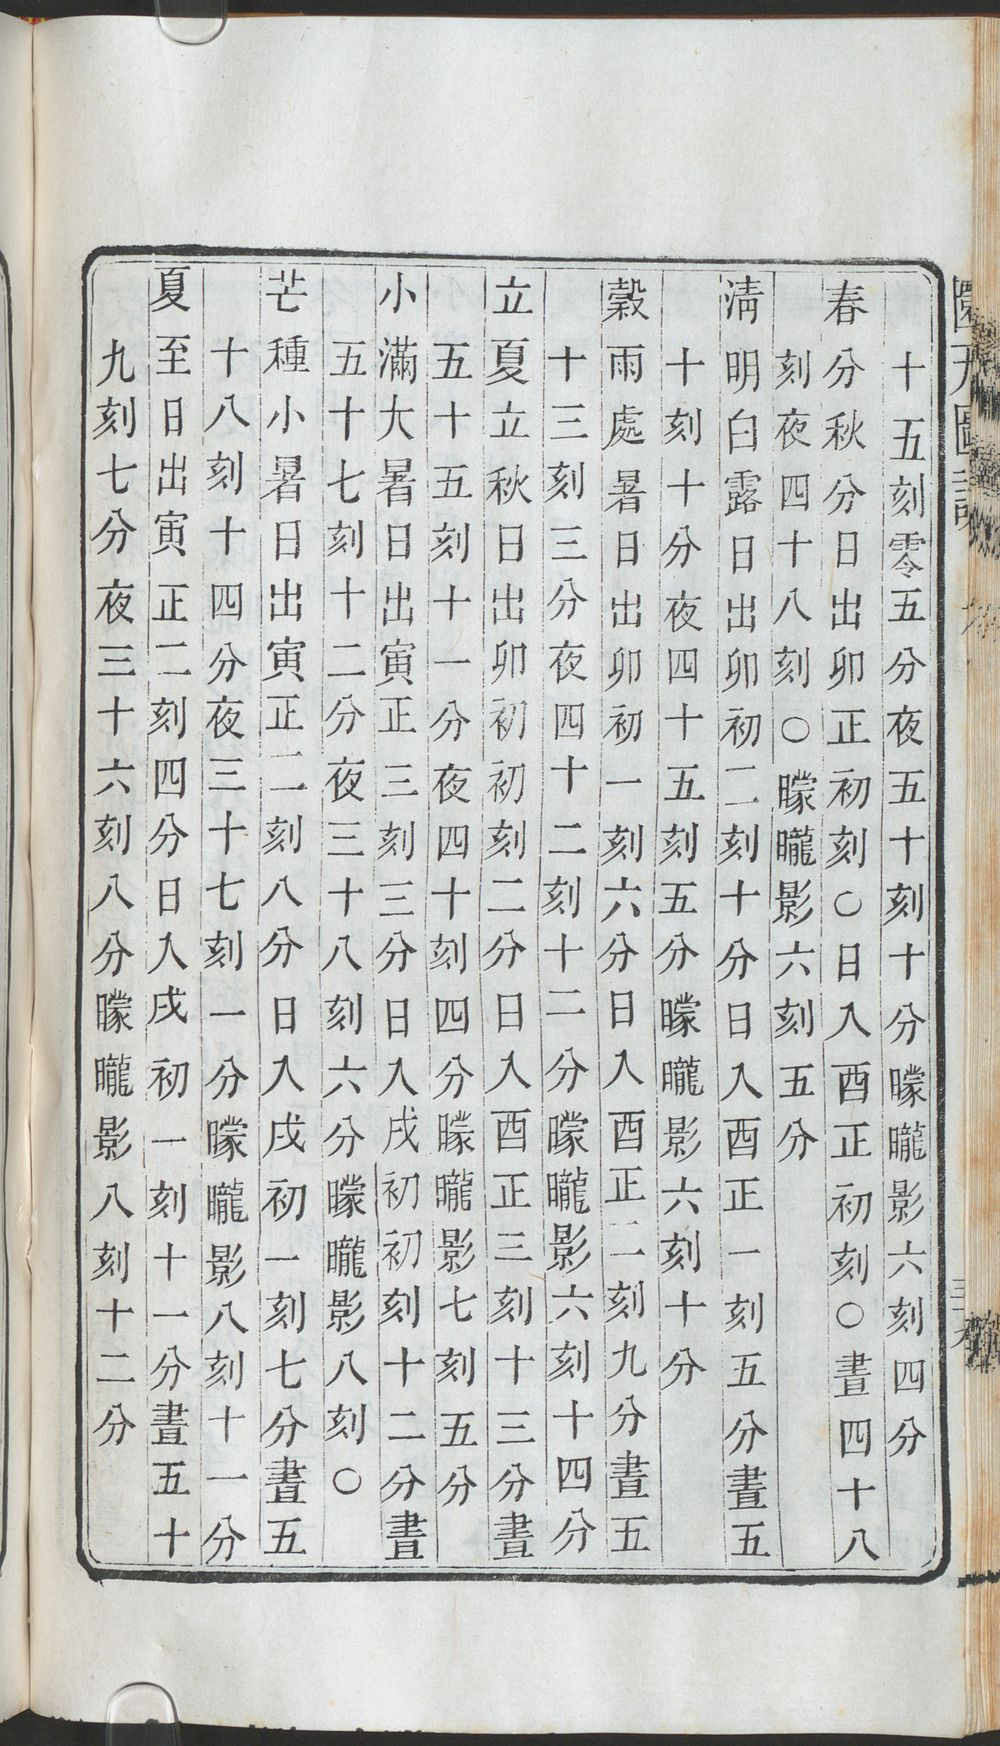 十五刻零五分夜五十刻十分曚曨影六刻四分
春分秋分日出卯正初刻〇日入酉正初刻〇晝四十八
刻夜四十八刻〇曚曨影六刻五分
清明白露日出卯初二刻十分日入酉正一刻五分晝五
十刻十分夜四十五刻五分曚曨影六刻十分
穀雨處暑日出卯初一刻六分日入酉正二刻九分晝五
十三刻三分夜四十二刻十二分曚曨影六刻十四分
立夏立秋日出卯初初刻二分日入酉正三刻十三分晝
五十五刻十一分夜四十刻四分曚曨影七刻五分
小滿大暑日出寅正三刻三分日入戌初初刻十二分晝
五十七刻十二分夜三十八刻六分曚曨影八刻〇
芒種小暑日出寅正二刻八分日入戌初一刻七分晝五
十八刻十四分夜三十七刻一分曚曨影八刻十一分
夏至日出寅正二刻四分日入戌初一刻十一分晝五十
九刻七分夜三十六刻八分曚曨影八刻十二分